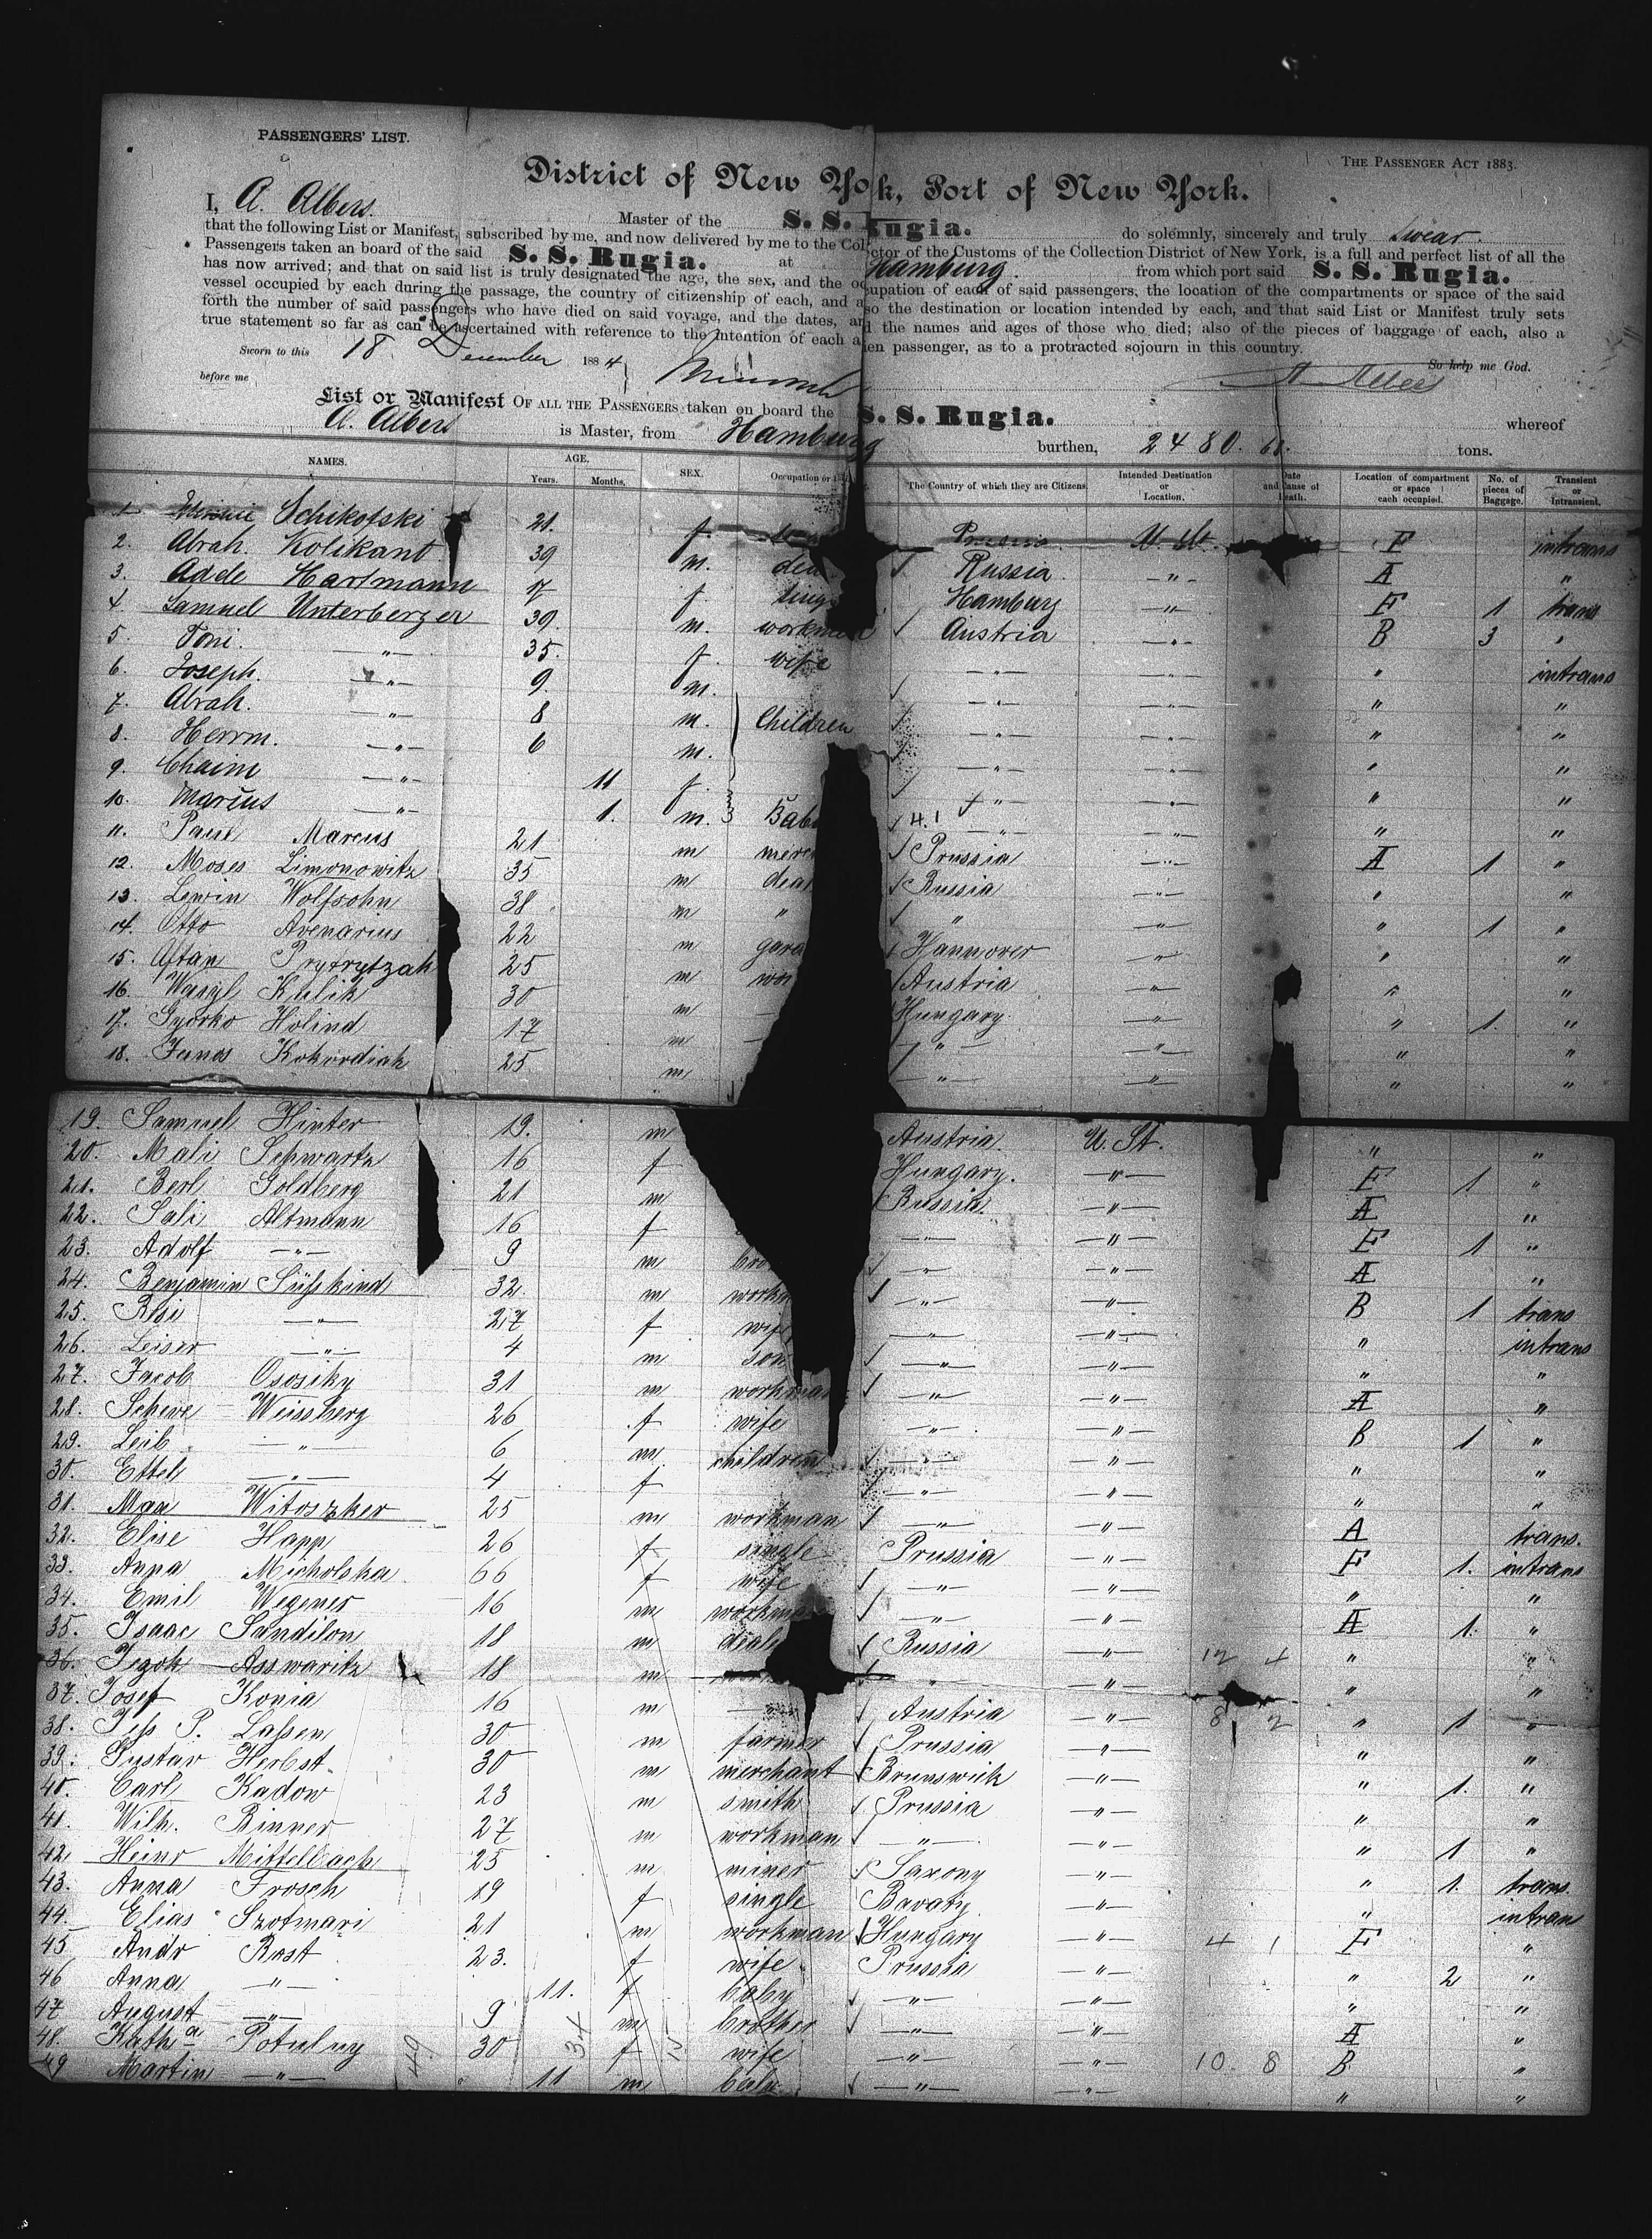 PASSENGERS' LIST.
THE PASSENGER ACT 1883.
District of New York, Port of New York.
I, A. Albers. Master of the S. S. Rugia. do solemnly, sincerely and truly swear.
that the following List or Manifest, subscribed by me, and now delivered by me to the Collector of the Customs of the Collection District of New York, is a full and perfect list of all the
Passengers taken an board of the said S. S. Rugia. at Hamburg. from which port said S. S. Rugia.
has now arrived; and that on said list is truly designated the age, the sex, and the occupation of each of said passengers, the location of the compartments or space of the said
vessel occupied by each during the passage, the country of citizenship of each, and also the destination or location intended by each, and that said List or Manifest truly sets
forth the number of said passengers who have died on said voyage, and the dates, and the names and ages of those who died; also of the pieces of baggage of each, also a
true statement so far as can be ascertained with reference to the intention of each alien passenger, as to a protracted sojourn in this country.
Sworn to this 18. December 1884 So help me God.
before me A. Albers
List or Manifest OF ALL THE PASSENGERS taken on board the S. S. Rugia. whereof
A. Albers is Master, from Hamburg burthen, 2480. tons.
NAMES. AGE. Years. Months. SEX. Occupation or The Country of which they are Citizens. Intended Destination or Location. Date and Cause of Death. Location of compartment or space each occupied. No. of pieces of Baggage. Transient or Intransient.
1. Schikofski 21. f. U. St. F intrans
2. Abrah. Kolikant 39 m. dea Russia. —"— A "
3. Adele Hartmann 17 f Hamburg —"— F 1 trans
4. Samuel Unterberger 39. m. workman Austria —"— B 3 "
5. Toni. —"— 35. f. wife —"— —"— " intrans
6. Joseph. —"— 9. m. —"— —"— " "
7. Abrah. —"— 8 m. Children —"— —"— " "
8. Herrm. —"— 6 m. —"— —"— " "
9. Chaim —"— 11 f. —"— —"— " "
10. Marcus —"— 1. m. Bab 4.1 —"— —"— " "
11. Paul Marcus 21 m merc Prussia —"— A 1 "
12. Moses Limonowitz 35 m deal Russia —"— " "
13. Lewin Wolfsohn 38 m " " —"— " 1 "
14. Otto Avenarius 22 m gard Hannover " " "
15. Aftan Prytrytzak 25 m wor Austria —"— " "
16. Wasyl Kulik 30 m Hungary. —"— " 1. "
17. Gyorko Holind 17 m —"— —"— " "
18. Janos Kokordiak 25 m —"— —"— " "
19. Samuel Hinter 19. m Austria. U. St. " "
20. Mali Schwartz 16 f Hungary. —"— F 1 "
21. Berl Goldberg 21 m Russia. —"— A "
22. Sali Altmann 16 f —"— —"— F 1 "
23. Adolf —"— 9 m bro —"— —"— A "
24. Benjamin Süsskind 32. m workm —"— —"— B 1 trans
25. Risi —"— 27 f wife —"— —"— " intrans
26. Leiser —"— 4 m son —"— —"— " "
27. Jacob Ososiky 31 m workman —"— —"— A "
28. Scheve Weissberg 26 f wife —"— —"— B 1 "
29. Leib —"— 6 m children —"— —"— " "
30. Ettel —"— 4 f —"— —"— " "
31. Max Witoszker 25 m workman —"— —"— A trans.
32. Elise Happ 26 f single Prussia —"— F 1. intrans
33. Anna Micholska 66 f wife —"— —"— " "
34. Emil Wegener 16 m workman —"— —"— A 1. "
35. Isaac Sandilon 18 m deale Russia —"— 12 4 " "
36. Jezok Asswaritz 18 m " —"— " "
37. Josef Konia 16 m Austria —"— 8 2 " 1 "
38. Jess P. Lassen 30 m farmer Prussia —"— " "
39. Gustav Herbst. 30 m merchant Brunswick —"— " 1. "
40. Carl Kadow 23 m smith Prussia —"— " "
41. Wilh. Binner 27 m workman —"— —"— " 1 "
42. Heinr Mittelbach 25 m miner Saxony —"— " 1. trans.
43. Anna Frosch 19 f single Bavary. —"— " intran
44. Elias Szotmari 21 m workman Hungary —"— 4 1 F "
45 Andr Rost 23. f wife Prussia —"— " 2 "
46 Anna —"— 11. f baby —"— —"— " "
47 August —"— 9 m brother —"— —"— A "
48. Katha Potulny 30 f wife —"— —"— 10. 8 B "
49 Martin —"— 11 m baby —"— —"— " "
49 34 15